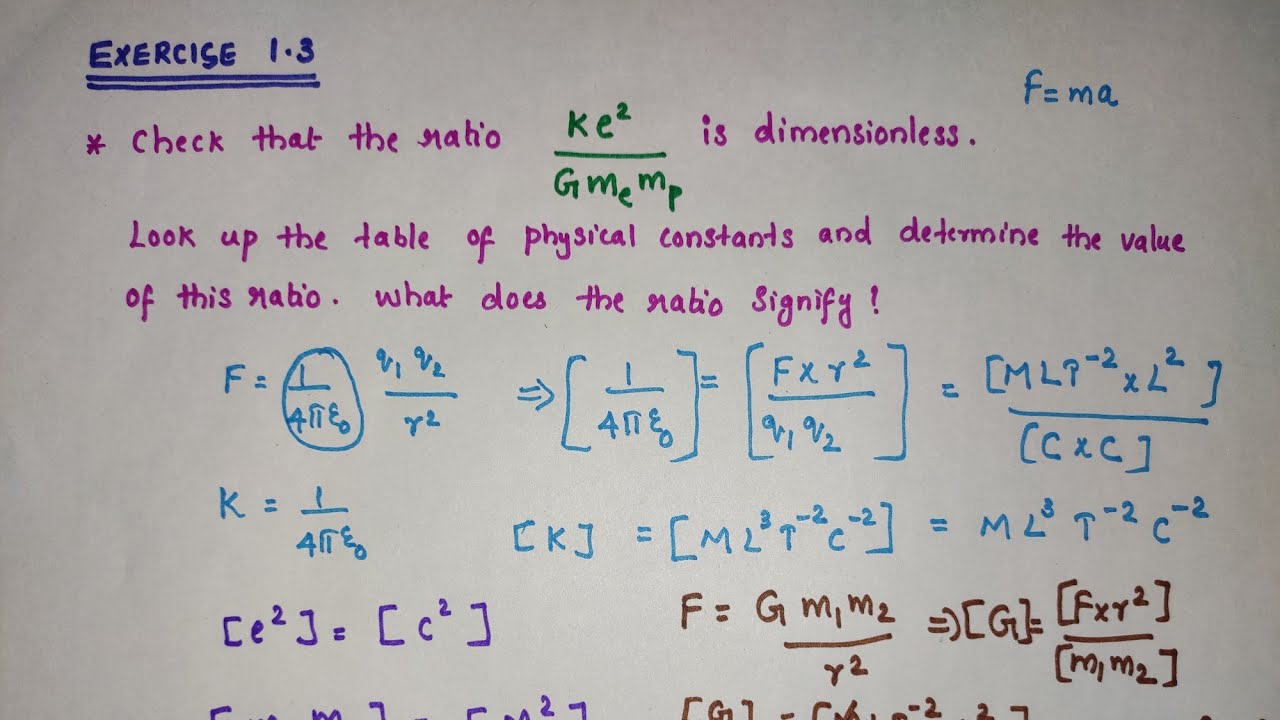 EXERCISE 1.3
F=ma
* Check that the ratio Ke²/(G mₑ mₚ) is dimensionless.
Look up the table of physical constants and determine the value
of this ratio. What does the ratio signify?
F = 1/(4πε₀) q₁ q₂/r² ⇒ [1/(4πε₀)] = [F x r²/(q₁ q₂)] = [MLT⁻² x L²]/[C x C]
K = 1/(4πε₀)
[K] = [M L³ T⁻² C⁻²] = M L³ T⁻² C⁻²
[e²] = [C²]
F = G m₁ m₂/r² ⇒ [G] = [F x r²]/[m₁ m₂]